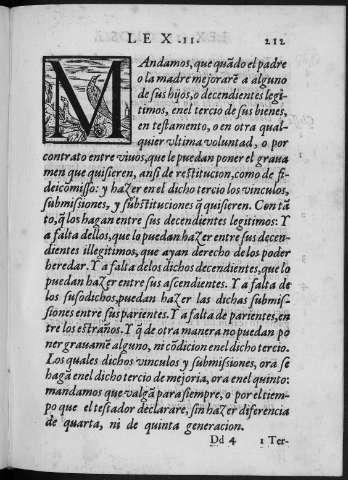 LEX .II. 212
MAndamos, que quãdo el padre
o la madre mejorarẽ a alguno
de sus hijos, o decendientes legi
timos, en el tercio de sus bienes,
en testamento, o en otra qual-
quier vltima voluntad, o por
contrato entre viuos, que le puedan poner el graua
men que quisieren, ansi de restitucion, como de fi-
deicomisso: y hazer en el dicho tercio los vinculos,
submissiones, y substituciones q̃ quisieren. Con tã
to, q̃ los hagan entre sus decendientes legitimos: Y
a falta dellos, que lo puedan hazer entre sus decen-
dientes illegitimos, que ayan derecho de los poder
heredar. Y a falta de los dichos decendientes, que lo
puedan hazer entre sus ascendientes. Y a falta de
los susodichos, puedan hazer las dichas submis-
siones entre sus parientes. Y a falta de parientes, en
tre los estraños. Y q̃ de otra manera no puedan po
ner grauamẽ alguno, ni cõdicion en el dicho tercio.
Los quales dichos vinculos y submissiones, ora se
hagã en el dicho tercio de mejoria, ora en el quinto:
mandamos que valgã para siempre, o por el tiem-
po que el testador declarare, sin hazer diferencia
de quarta, ni de quinta generacion.
Dd 4 1 Ter-